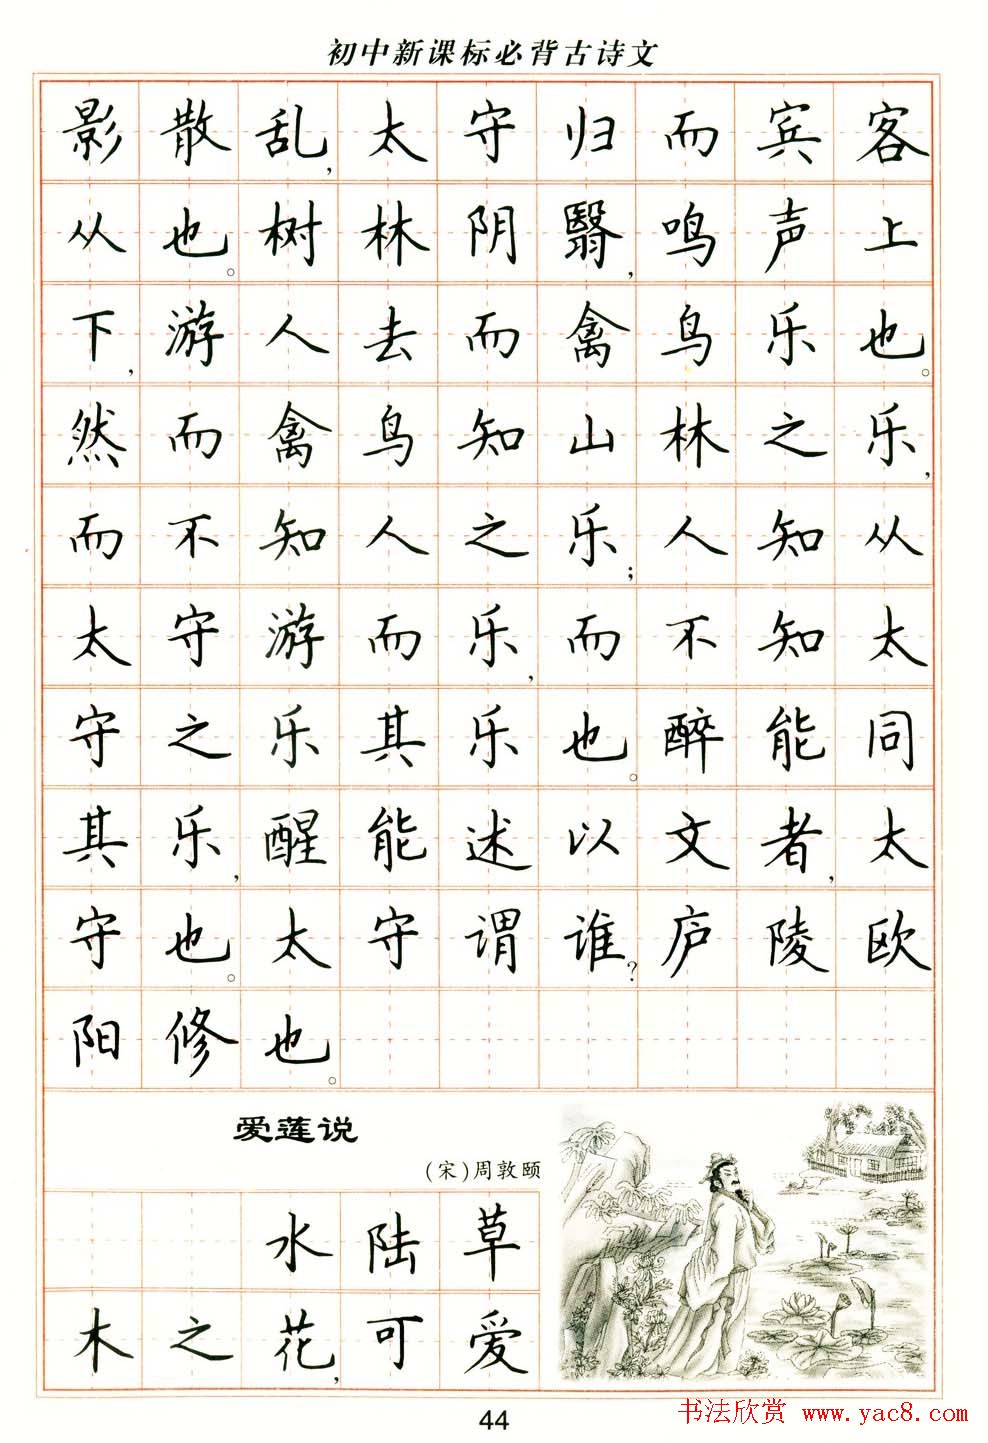 初中新课标必背古诗文
影散乱,太守归而宾客
从也。树林阴翳,鸣声上
下,游人去而禽鸟乐也。
然而禽鸟知山林之乐,
而不知人之乐;人知从
太守游而乐,而不知太
守之乐其乐也。醉能同
其乐,醒能述以文者,太
守也。太守谓谁?庐陵欧
阳修也。
爱莲说
(宋)周敦颐
水陆草
木之花,可爱
44
书法欣赏 www.yac8.com